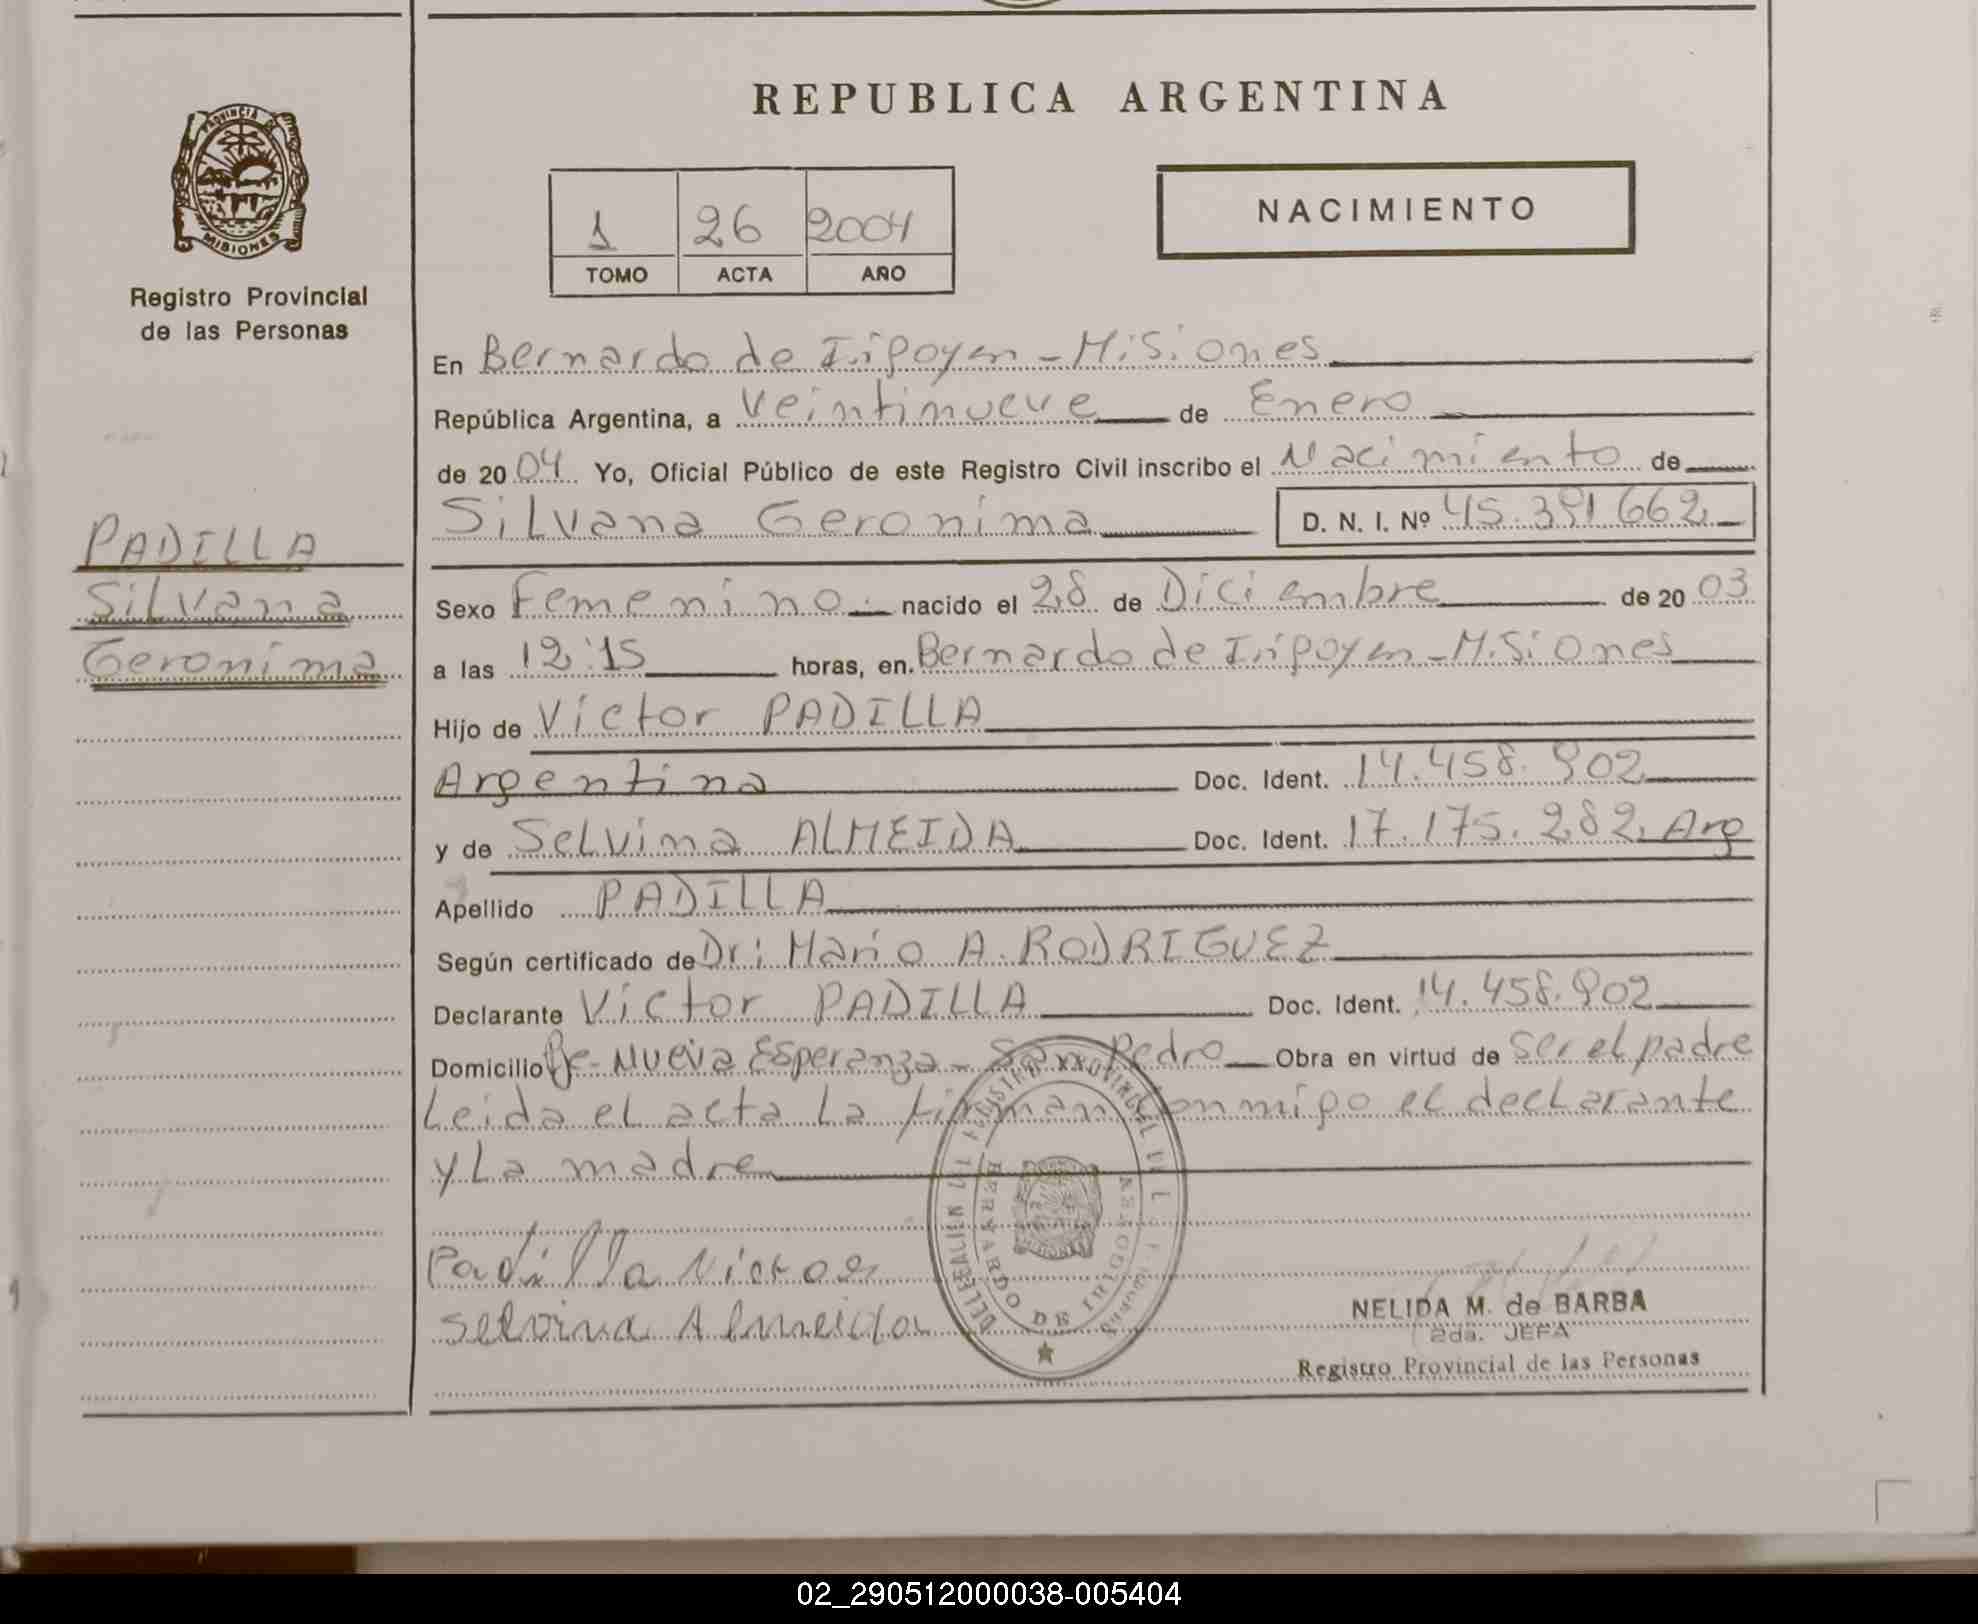 REPUBLICA ARGENTINA
PROVINCIA DE
MISIONES
Registro Provincial
de las Personas
1 26 2004
TOMO ACTA AÑO
NACIMIENTO
PADILLA
Silvana
Geronima
En Bernardo de Irigoyen - Misiones
República Argentina, a Veintinueve de Enero
de 2004 Yo, Oficial Público de este Registro Civil inscribo el Nacimiento de
Silvana Geronima D. N. I. Nº 45.391.662
Sexo Femenino nacido el 28 de Diciembre de 2003
a las 12:15 horas, en Bernardo de Irigoyen - Misiones
Hijo de Victor PADILLA
Argentina Doc. Ident. 14.458.902
y de Selvina ALMEIDA Doc. Ident. 17.175.282 Arg
Apellido PADILLA
Según certificado de Dr: Mario A. RODRIGUEZ
Declarante Victor PADILLA Doc. Ident. 14.458.902
Domicilio Pje - Nueva Esperanza - San Pedro Obra en virtud de ser el padre
Leida el acta La firman conmigo el declarante
y La madre
Padilla Victor
Selvina Almeida
BERNARDO DE IRIGOYEN
NELIDA M. de BARBA
2da. JEFA
Registro Provincial de las Personas
02_290512000038-005404